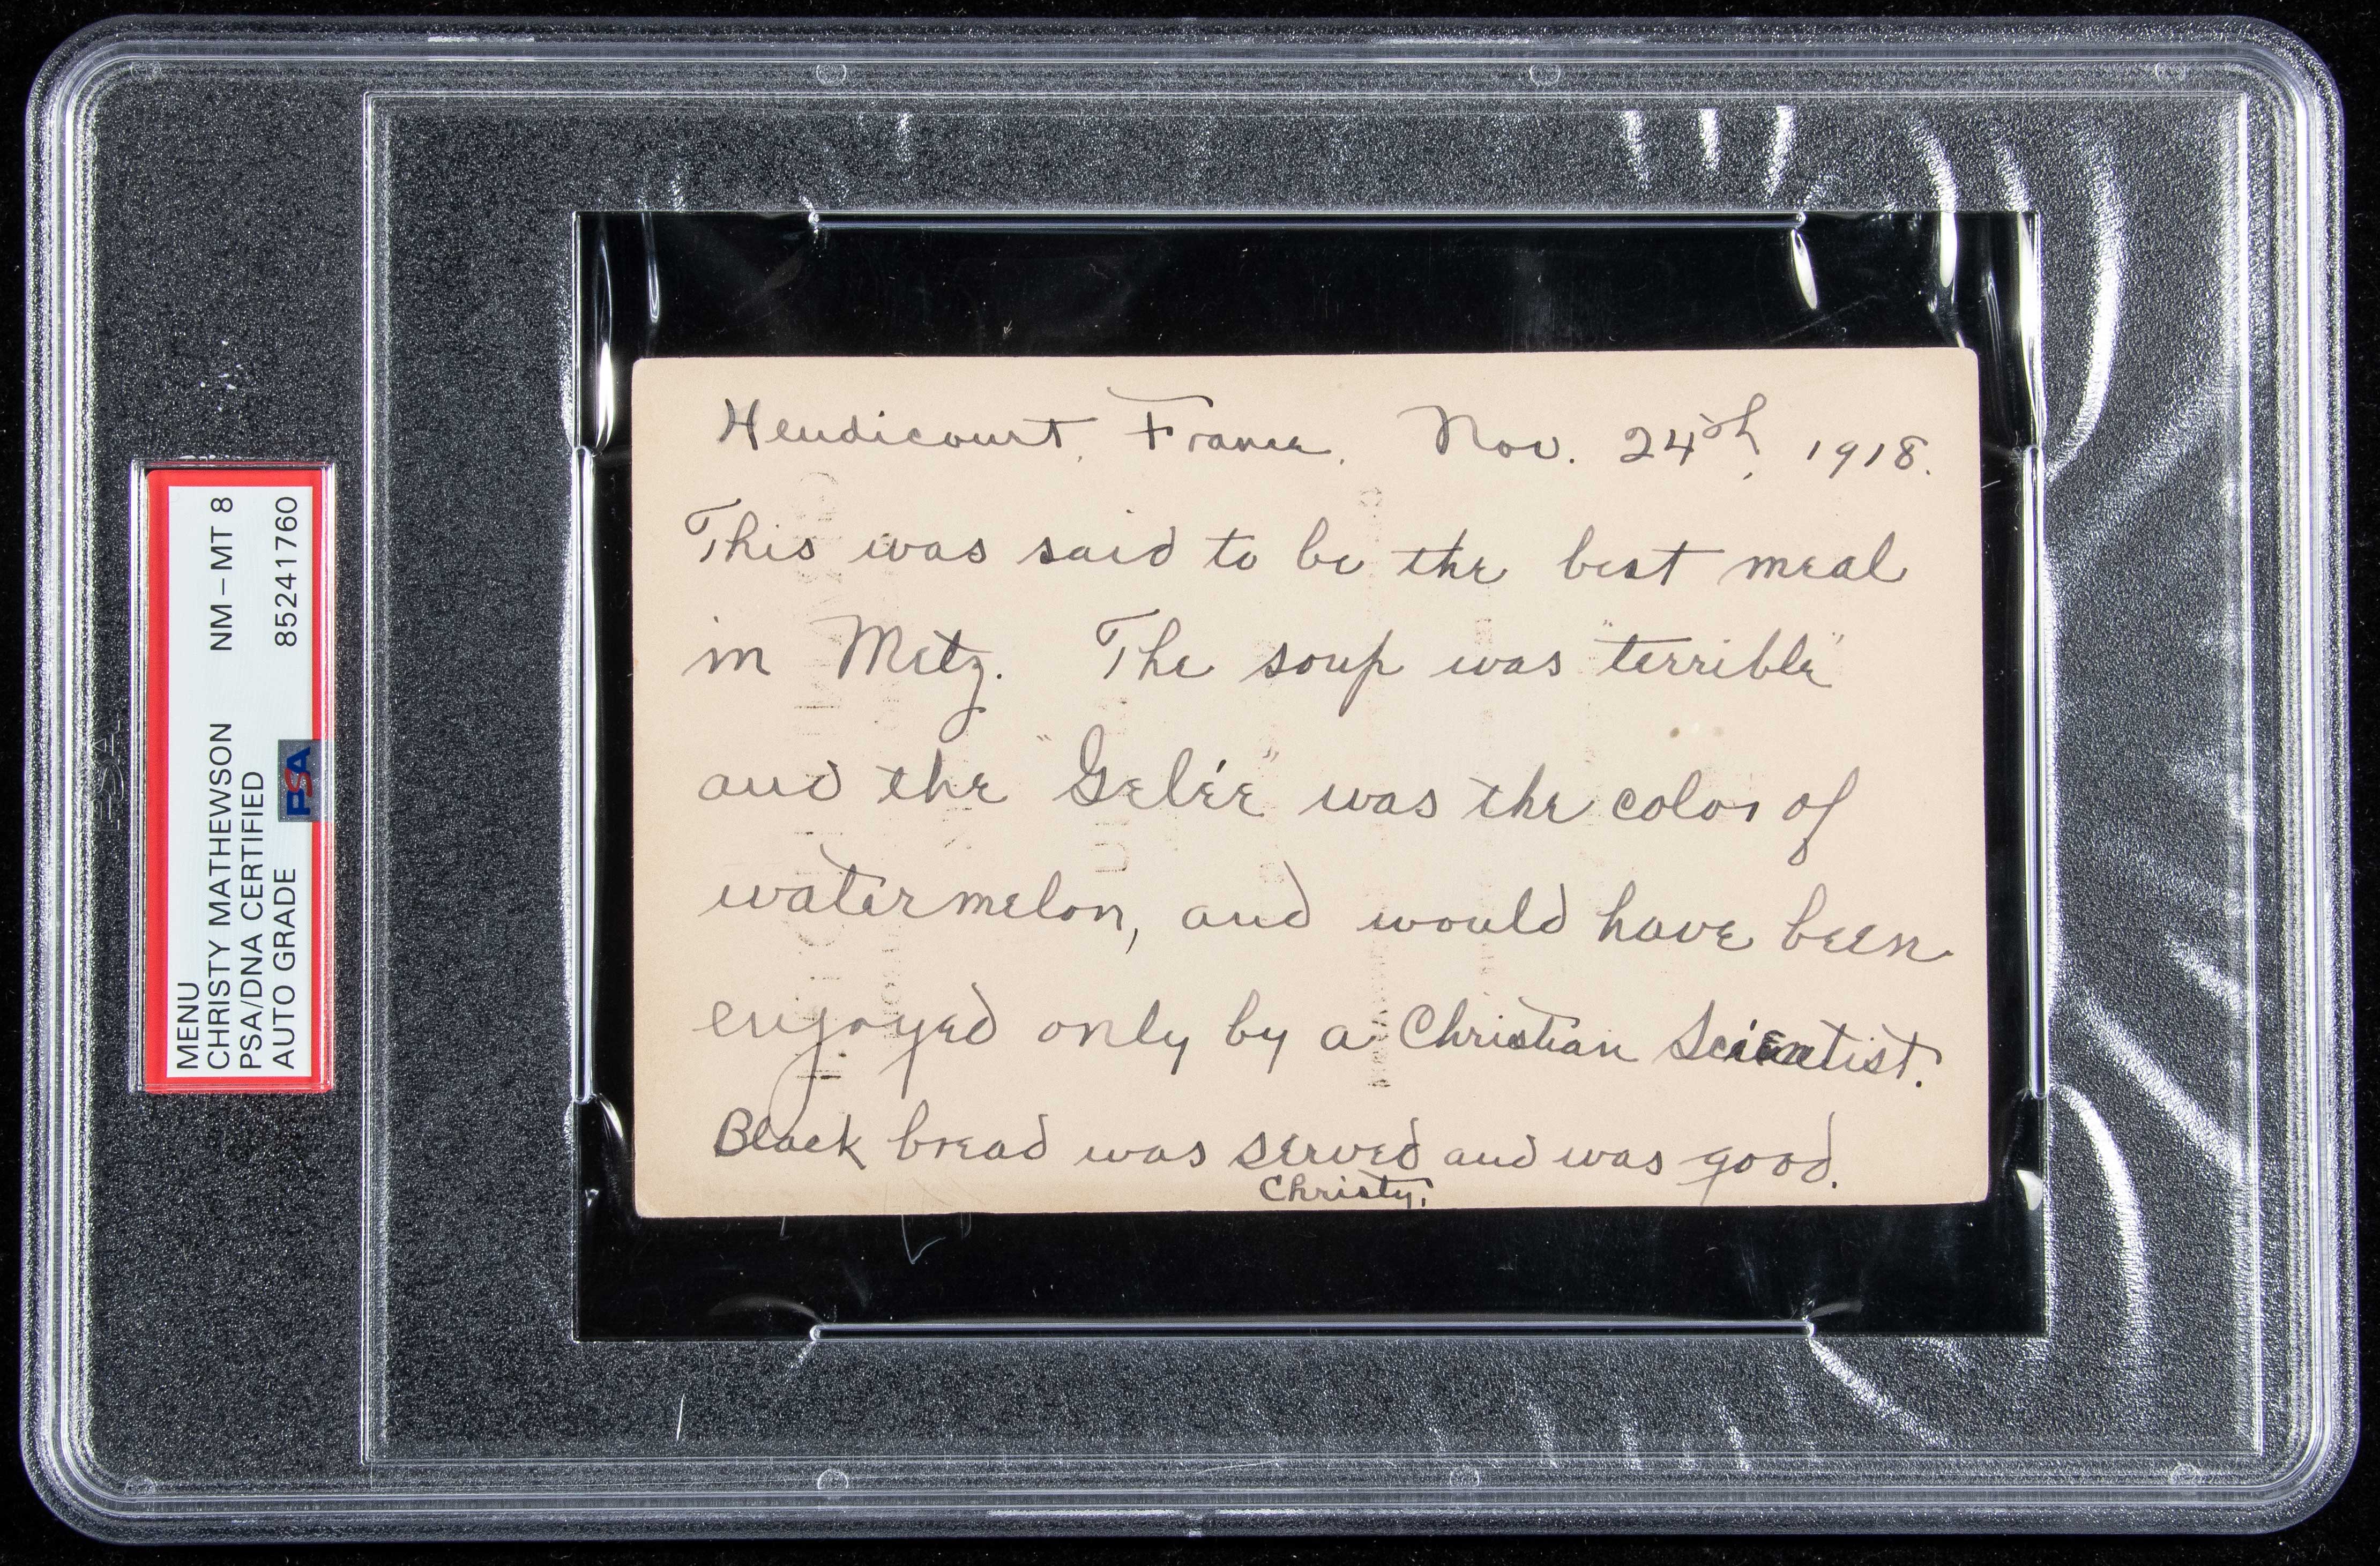 MENU NM-MT 8
CHRISTY MATHEWSON
PSA/DNA CERTIFIED
AUTO GRADE 85241760
PSA
Heudicourt, France. Nov. 24th, 1918.
This was said to be the best meal
in Metz. The soup was "terrible"
and the "Gelée" was the color of
watermelon, and would have been
enjoyed only by a Christian Scientist.
Black bread was served and was good.
Christy.